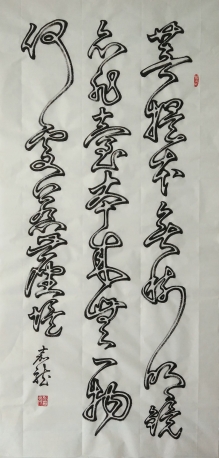 菩提本無樹明鏡
亦非臺本來無一物
何處惹塵埃